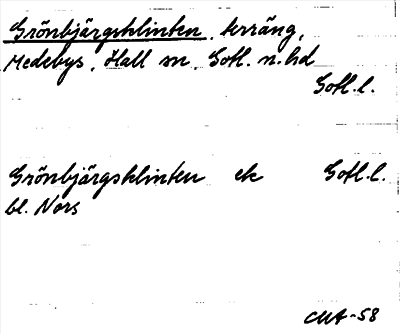 Grönbjärgsklinten, terräng,
Medebys, Hall sn, Gotl. n. hd
Gotl. l.
Grönbjärgsklinten ek Gotl. l.
bl. Nors
CMA-58